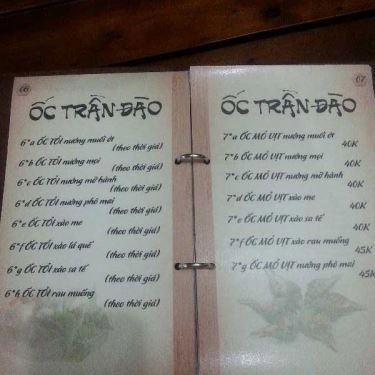 06
ỐC TRẦN-ĐÀO
6*a ỐC TỎI nướng muối ớt
(theo thời giá)
6*b ỐC TỎI nướng mọi
(theo thời giá)
6*c ỐC TỎI nướng mỡ hành
(theo thời giá)
6*d ỐC TỎI nướng phô mai
(theo thời giá)
6*e ỐC TỎI xào me
(theo thời giá)
6*f ỐC TỎI xào lá quế
(theo thời giá)
6*g ỐC TỎI xào sa tế
(theo thời giá)
6*h ỐC TỎI rau muống
(theo thời giá)
07
ỐC TRẦN-ĐÀO
7*a ỐC MỎ VỊT nướng muối ớt
40K
7*b ỐC MỎ VỊT nướng mọi
40K
7*c ỐC MỎ VỊT nướng mỡ hành
40K
7*d ỐC MỎ VỊT xào me
40K
7*e ỐC MỎ VỊT xào sa tế
40K
7*f ỐC MỎ VỊT xào rau muống
45K
7*g ỐC MỎ VỊT nướng phô mai
45K